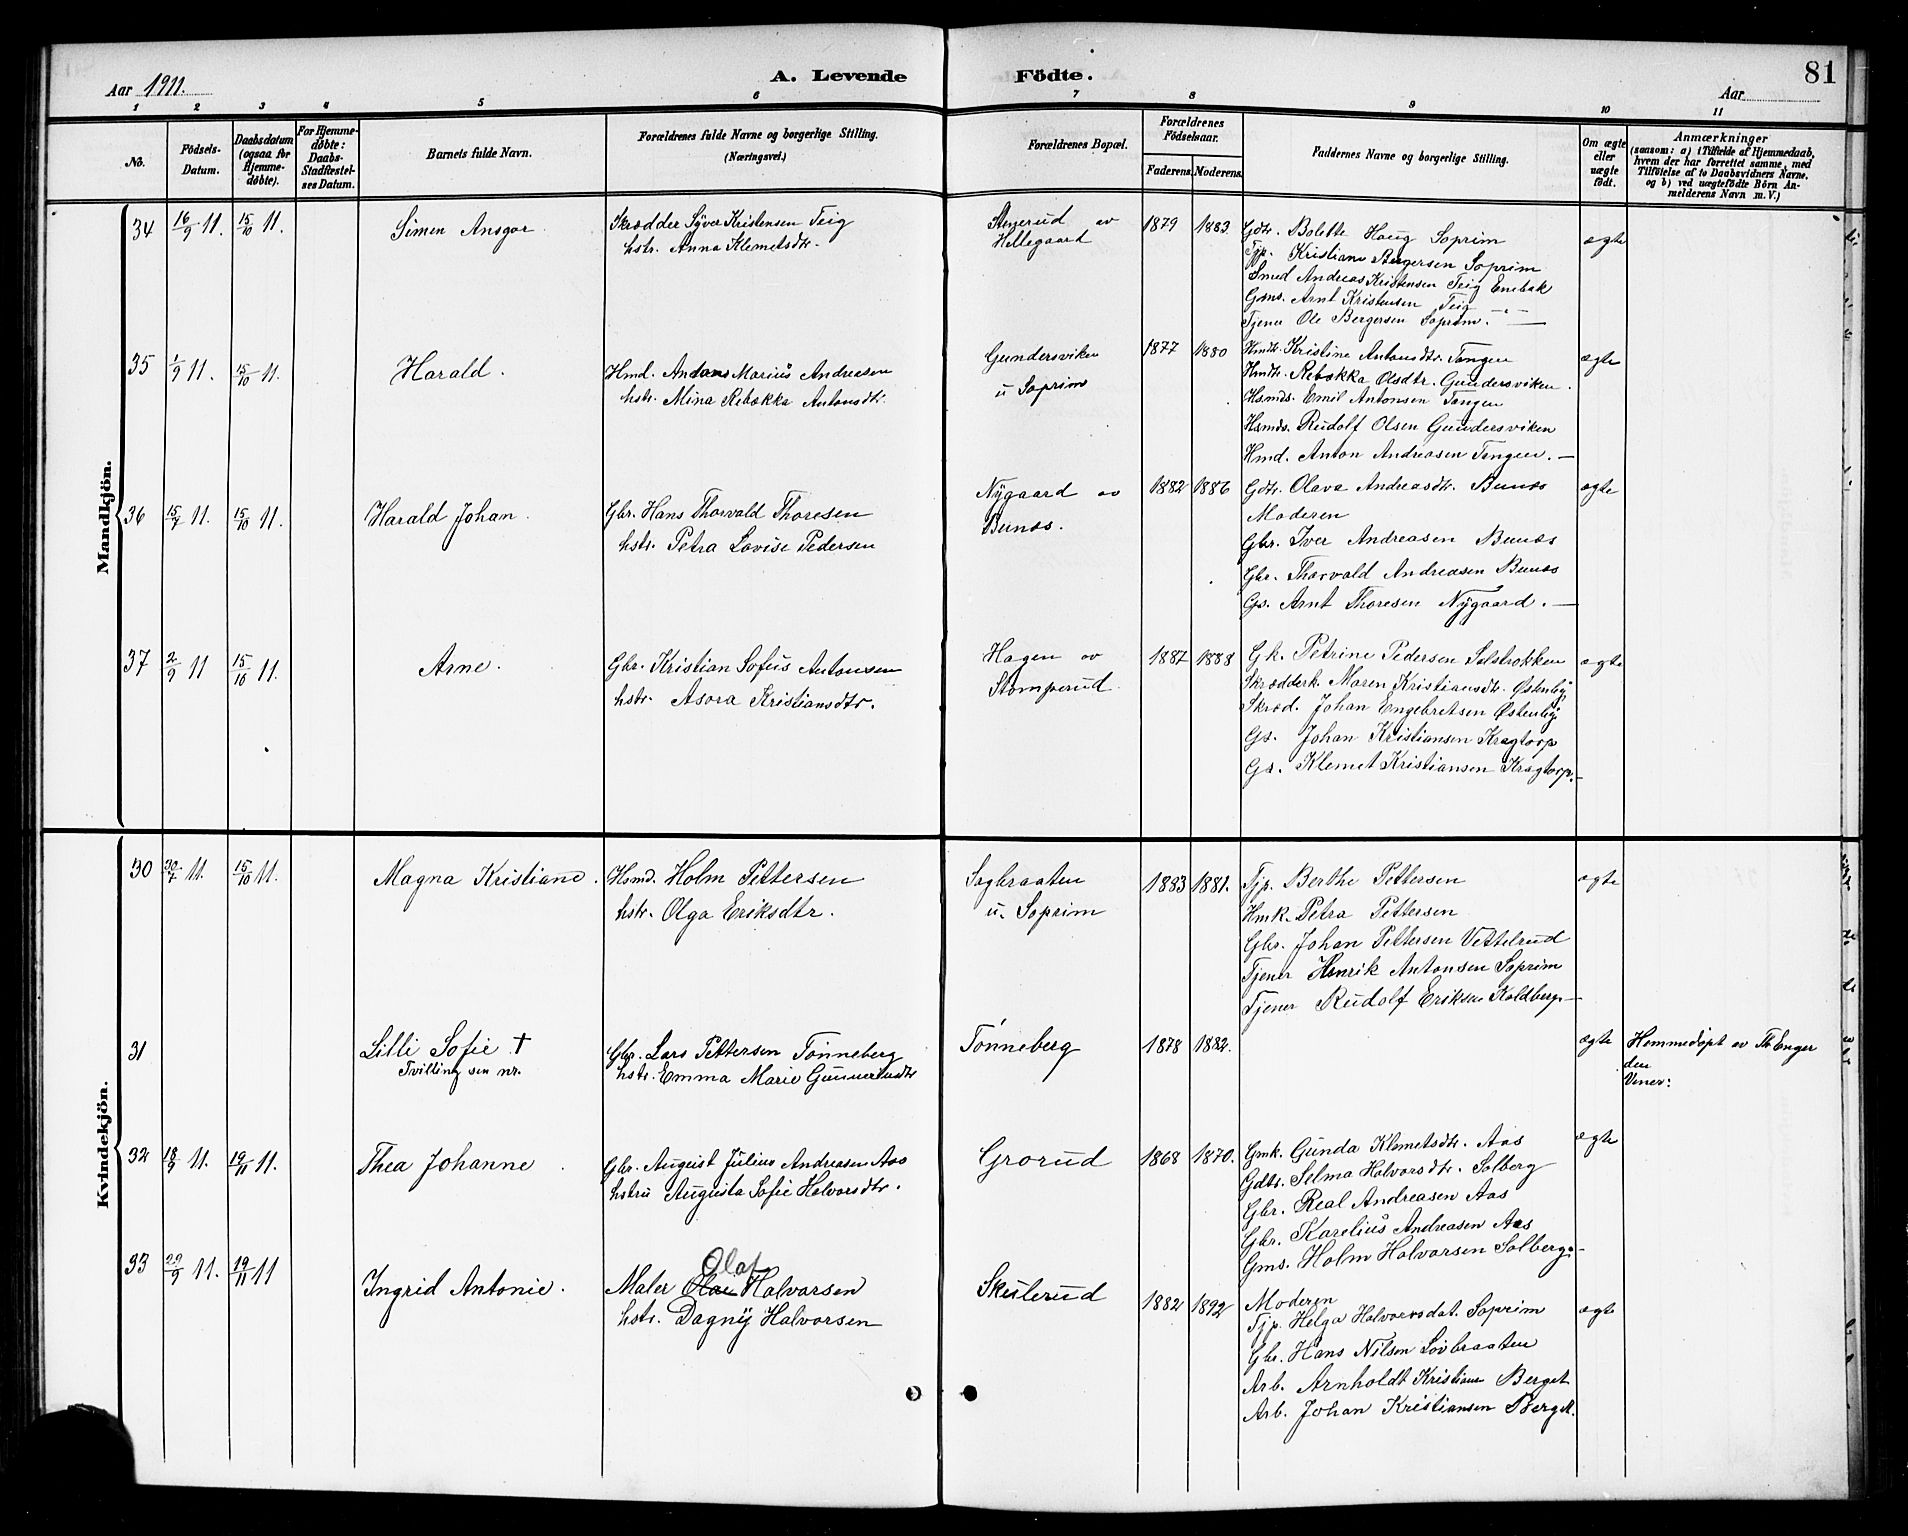 Aar 1911.
A. Levende Födte.
81
Aar
1 2 3 4 5 6 7 8 9 10 11
No.
Födsels-Datum.
Daabsdatum (ogsaa for Hjemmedöbte).
For Hjemmedöbte: Daabs-Stadfæstelses Datum.
Barnets fulde Navn.
Forældrenes fulde Navne og borgerlige Stilling.
(Næringsvei.)
Forældrenes Bopæl.
Forældrenes Födselsaar.
Faderens. Moderens.
Faddernes Navne og borgerlige Stilling.
Om ægte eller uægte födt.
Anmærkninger
(saasom: a) i Tilfælde af Hjemmedaab, hvem der har forrettet samme, med Tilföielse af to Daabsvidners Navne, og b) ved uægtefödte Börn Anmelderens Navn m. V.)
Mandkjön.
34 16/9 11. 15/10 11. Simen Ansgar. Skrædder Syver Kristensen Teig
hstr. Anna Klemetsdtr.
Stenerud av
Hellegaard
1879 1883. Gdtr. Bolette Haug Soprim
Tjp. Kristiane Bergersen Soprim
Smed Andreas Kristensen Teig Enebak
Gms. Arnt Kristensen Teig
Tjener Ole Bergersen Soprim.
ægte
35 1/9 11. 15/10 11. Harald. Hmd. Andreas Marius Andreasen
hstr. Mina Rebekka Antonsdtr.
Gundersviken
u Soprim
1877 1880 Hmdtr. Kristine Antonsdtr. Tangen
Hmdtr. Rebekka Olsdtr. Gundersviken.
Hsmds. Emil Antonsen Tangen
Hsmds. Rudolf Olsen Gundersviken
Hmd. Anton Andreasen Tangen.
ægte
36 15/7 11. 15/10 11. Harald Johan. Gbr. Hans Thorvald Thoresen
hstr. Petra Lovise Pedersen
Nygaard av
Bunæs.
1882 1886 Gdtr. Olava Andreasdtr. Bunæs
Moderen
Gbr. Iver Andreasen Bunæs
Gbr. Thorvald Andreasen Bunæs
Gs. Arnt Thoresen Nygaard.
ægte
37 2/9 11 15/10 11. Arne. Gbr. Kristian Sofus Antonsen
hstr. Asora Kristiansdtr.
Hagen av
Stomperud.
1887 1888 Gk. Petrine Pedersen Solstrokken
Skrædderk. Maren Kristiansdtr. Østenby
Skræd. Johan Engebretsen Østenby
Gs. Johan Kristiansen Kragtorp
Gs. Klemet Kristiansen Kragtorp.
ægte
Kvindekjön.
30 30/7 11. 15/10 11. Magna Kristiane. Hsmd. Holm Pettersen
hstr. Olga Eriksdtr.
Sagbraaten
u. Soprim
1883 1881. Tjp. Berthe Pettersen
Hmk. Petra Pettersen
Gbr. Johan Pettersen Vettelrud
Tjener Henrik Antonsen Soprim
Tjener Rudolf Eriksen Koldberg
ægte
31 Lilli Sofie †
Tvilling sen nr.
Gbr. Lars Pettersen Tønneberg
hstr. Emma Marie
Tønneberg
1878 1882. ægte
Hemmedøpt av Th Enger
den
32 18/9 11. 19/11 11. Thea Johanne. Gbr. August Julius Andreasen Aas
hstru Augusta Sofie Halvorsdtr.
Grorud
1868 1870. Gmk. Gunda Klemetsdtr. Aas
Gdtr. Selma Halvorsdtr. Solberg
Gbr. Real Andreasen Aas
Gbr. Karelius Andreasen Aas
Gms. Holm Halvorsen Solberg.
ægte
33 29/9 11. 19/11 11 Ingrid Antonie. Olaf
Maler Halvorsen
hstr. Dagny Halvorsen
Skulerud
1882 1892 Moderen
Tjp. Helga Halvorsdat. Soprim
Gbr. Hans Nilsen Løvbraaten
Arb. Arnholdt Kristians Berget
Arb. Johan Kristiansen Berget.
ægte